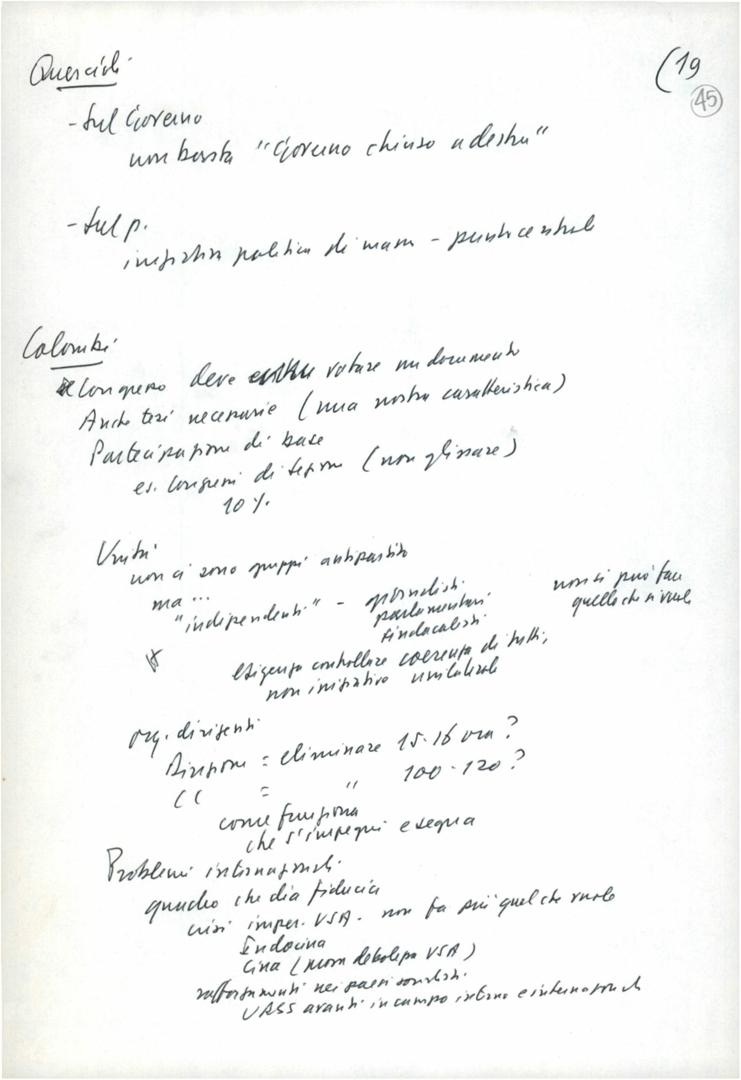 Quercioli
(19
45
- Sul Governo
non basta "Governo chiuso a destra"
- Sul p.
iniziativa politica di massa - punto centrale
Colombi
Congresso deve votare un documento
Anche tesi necessarie (una nostra caratteristica)
Partecipazione di base
es. Congressi di sezione (non glissare)
10%
Unità
non ci sono gruppi antipartito
ma...
"indipendenti" - giornalisti non si può fare
parlamentari quello che si vuole
sindacalisti
esigenza controllare coerenza di tutti,
non iniziative unilaterali
org. dirigenti
Direzione = eliminare 15-16 ora?
CC = " 100-120?
come funziona
che s'impegni e segua
Problemi internazionali
quadro che dia fiducia
crisi imper. USA - non fa più quel che vuole
Indocina
Cina (nuova debolezza USA)
rafforzamenti nei paesi socialisti
URSS avanti in campo interno e internazionale